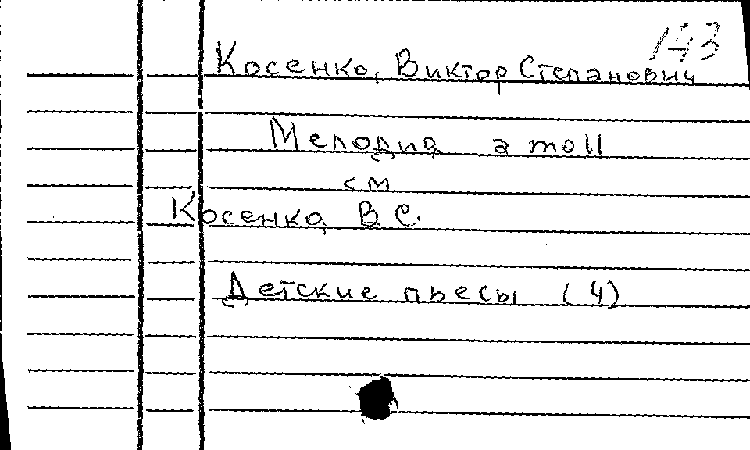 143
Косенко, Виктор Степанович
Мелодия a moll
см
Косенко, В С.
Детские пьесы (4)